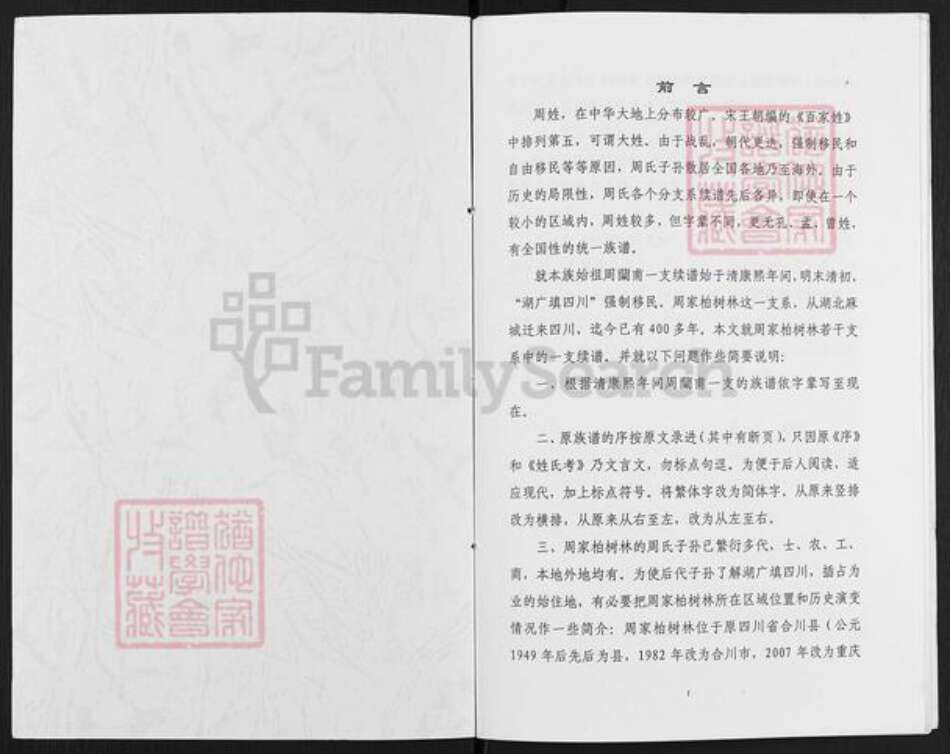 前 言
周姓，在中华大地上分布较广。宋王朝编的《百家姓》
中排列第五，可谓大姓。由于战乱，朝代更迭，强制移民和
自由移民等等原因，周氏子孙散居全国各地乃至海外。由于
历史的局限性，周氏各个分支系续谱先后各异，即使在一个
较小的区域内，周姓较多，但字辈不同，更无孔、孟、曾姓，
有全国性的统一族谱。
就本族始祖周蘭甫一支续谱始于清康熙年间，明末清初，
“湖广填四川”强制移民。周家柏树林这一支系，从湖北麻
城迁来四川，迄今已有 400 多年。本文就周家柏树林若干支
系中的一支续谱。并就以下问题作些简要说明：
一、根据清康熙年间周蘭甫一支的族谱依字辈写至现
在。
二、原族谱的序按原文录进（其中有断页），只因原《序》
和《姓氏考》乃文言文，勿标点句逗。为便于后人阅读，适
应现代，加上标点符号。将繁体字改为简体字。从原来竖排
改为横排，从原来从右至左，改为从左至右。
三、周家柏树林的周氏子孙已繁衍多代，士、农、工、
商，本地外地均有。为使后代子孙了解湖广填四川，插占为
业的始住地，有必要把周家柏树林所在区域位置和历史演变
情况作一些简介：周家柏树林位于原四川省合川县（公元
1949 年后先后为县，1982 年改为合川市，2007 年改为重庆
1
FamilySearch